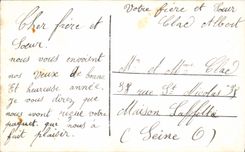 Cher frère et
Sœur
nous vous envoient
nos Veux de bonne
Et heureuse année.
je vous direz que
nous avont reçue votre
paquet que nous à
fait plaisir.
Votre frère et Sœur
Clac Albert
Mr et Mme Clac
38 rue St Nicolas 38
Maison Laffitte
(Seine O)